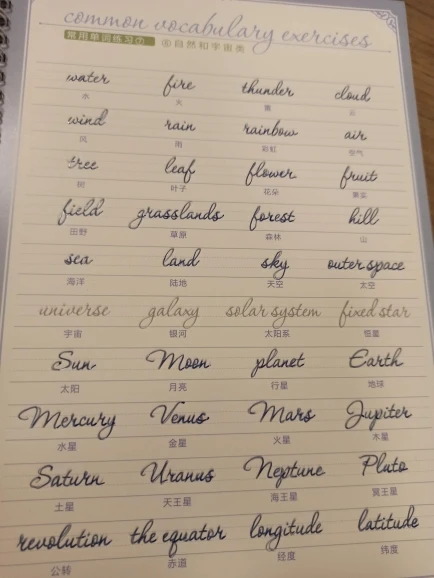 common vocabulary exercises
常用单词练习⑦ ⑧自然和宇宙类
water fire thunder cloud
水 火 雷 云
wind rain rainbow air
风 雨 彩虹 空气
tree leaf flower fruit
树 叶子 花朵 果实
field grasslands forest hill
田野 草原 森林 山
sea land sky outer space
海洋 陆地 天空 太空
universe galaxy solar system fixed star
宇宙 银河 太阳系 恒星
Sun Moon planet Earth
太阳 月亮 行星 地球
Mercury Venus Mars Jupiter
水星 金星 火星 木星
Saturn Uranus Neptune Pluto
土星 天王星 海王星 冥王星
revolution the equator longitude latitude
公转 赤道 经度 纬度